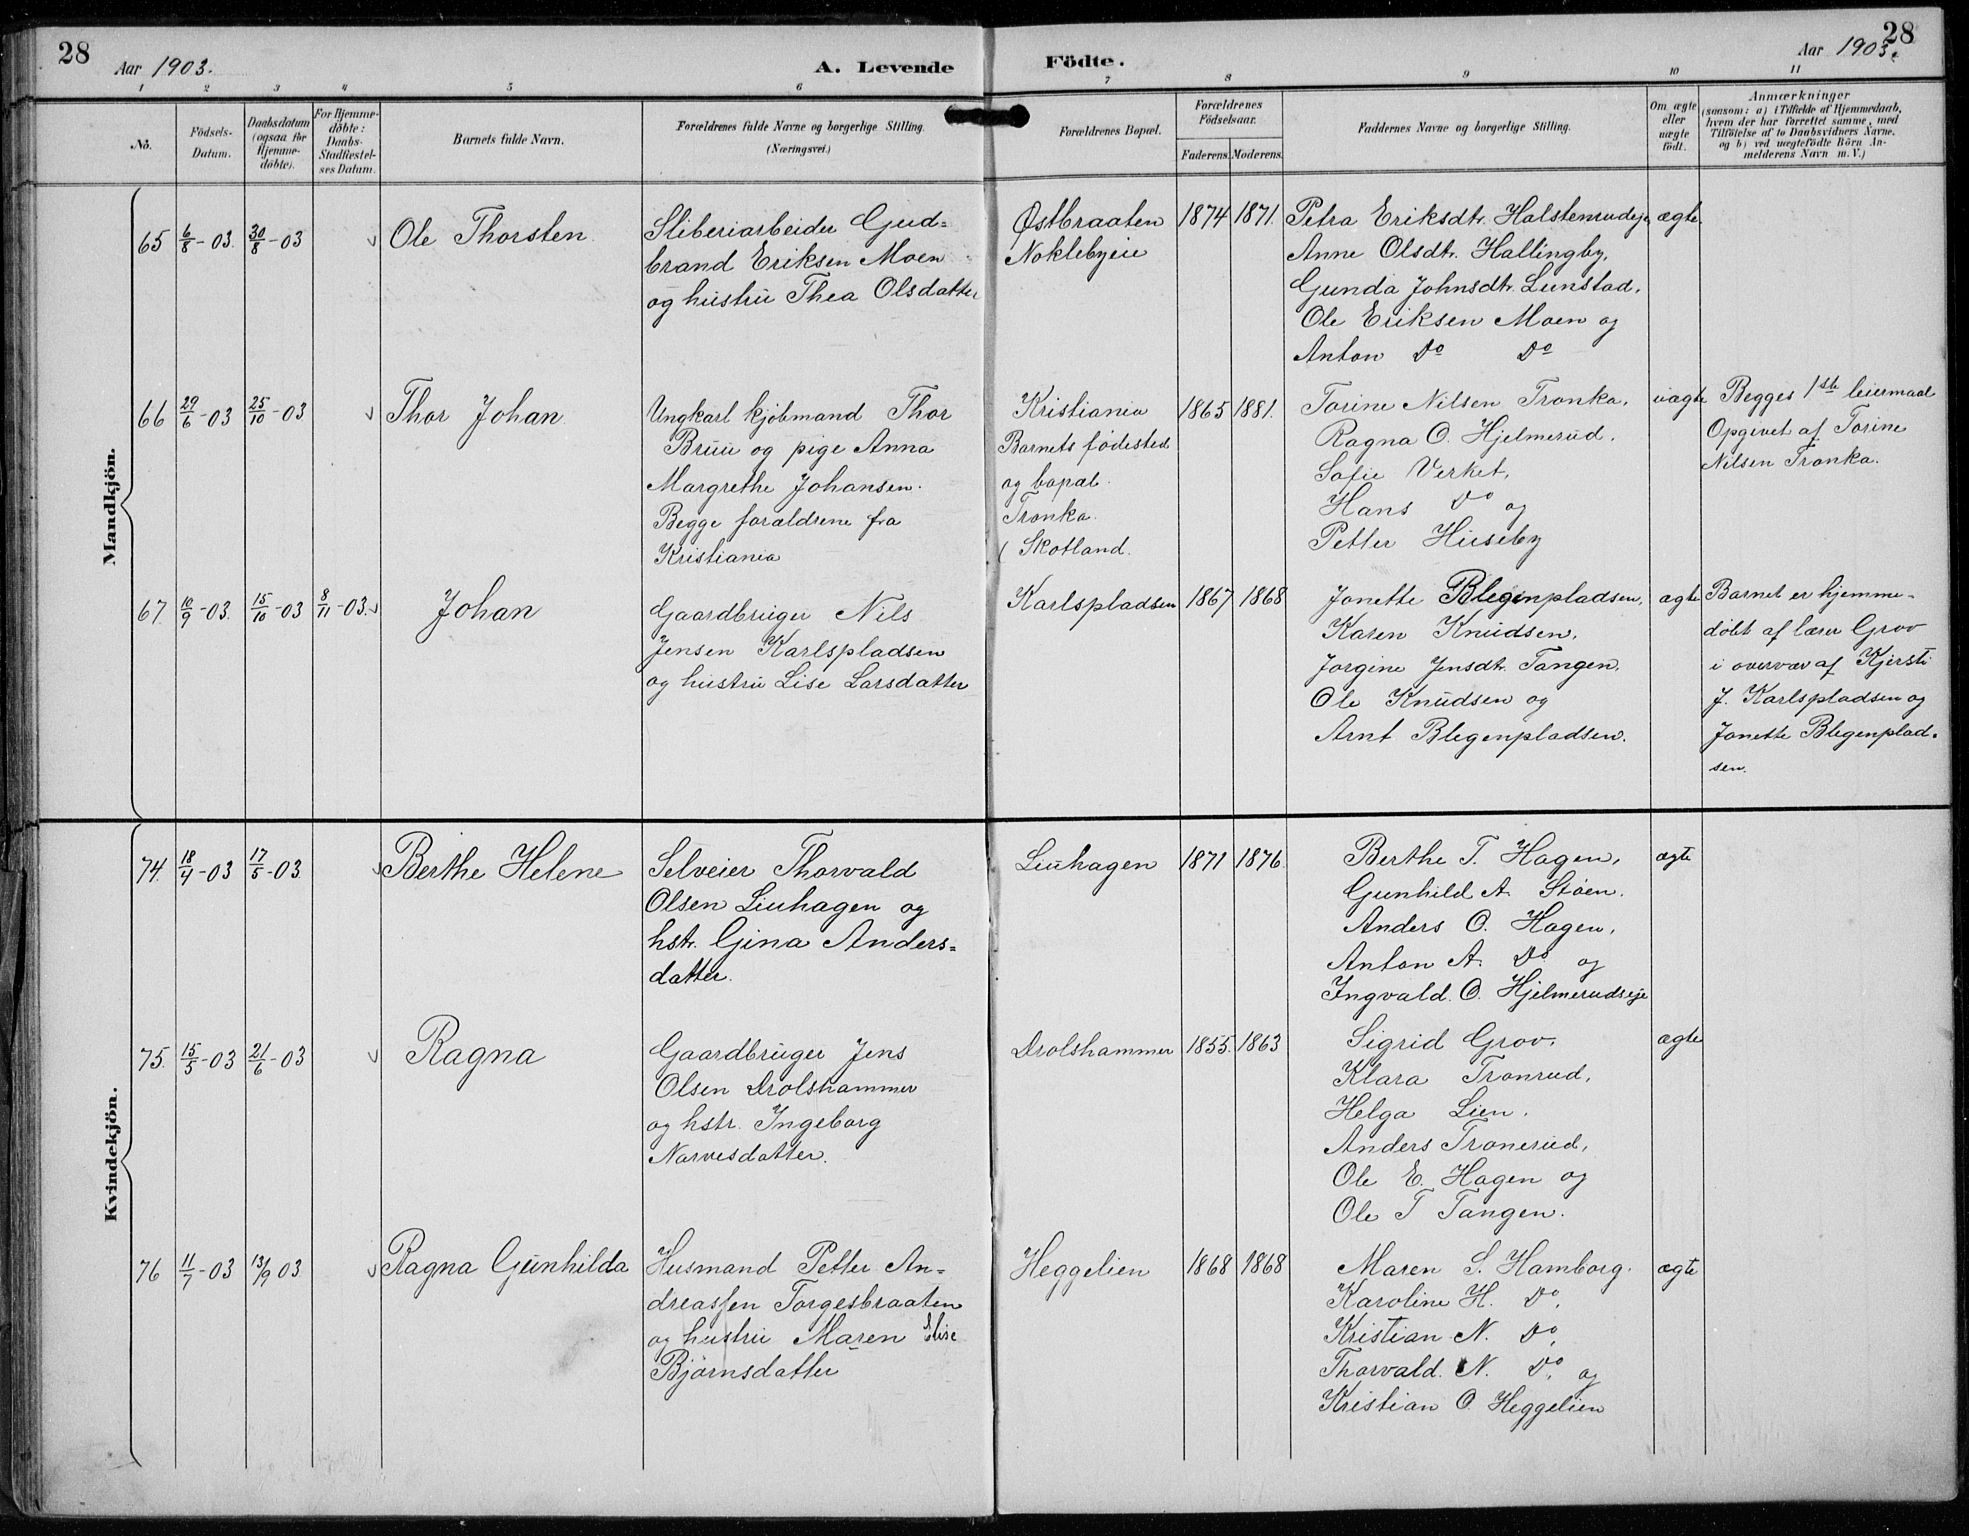 28
Aar 1903.
A. Levende
Födte.
Aar 1903.
28
1 2 3 4 5 6 7 8 9 10 11
No.
Födsels-
Datum.
Daabsdatum
(ogsaa for
Hjemme-
döbte).
For Hjemme-
döbte:
Daabs-
Stadfæstel-
ses Datum.
Barnets fulde Navn.
Forældrenes fulde Navne og borgerlige Stilling.
(Næringsvei.)
Forældrenes Bopæl.
Forældrenes
Födselsaar.
Faderens. Moderens.
Faddernes Navne og borgerlige Stilling.
Om ægte
eller
uægte
födt.
Anmærkninger
(saasom: a) i Tilfælde af Hjemmedaab,
hvem der har forrettet samme, med
Tilföielse af to Daabsvidners Navne.
og b) ved uægtefödte Börn An-
melderens Navn m. V.)
Mandkjön.
65 6/8-03. 30/8-03
Ole Thorsten
Sliberiarbeider Gud=
brand Eriksen Moen
og hustru Thea Olsdatter
Østbraaten
Noklebyeie
1874 1871.
Petra Eriksdtr. Halstenrudeje,
Anne Olsdtr. Hallingby,
Gunda Johnsdtr. Lunstad,
Ole Eriksen Moen og
Anton Do Do
ægte
66 29/6-03 25/10-03
Thor Johan
Ungkarl kjöbmand Thor
Bruu og pige Anna
Margrethe Johansen.
Begge forældrene fra
Kristiania
Kristiania
Barnets fødested
og bopæl.
Tronka.
( Skotland.
1865 1881.
Torine Nilsen Tronka,
Ragna O. Hjelmerud,
Sofie Verket,
Hans Do og
Petter Huseby
uægte
Begges 1ste leiermaal
Opgevet af Torine
Nilsen Tronka.
67 10/9-03. 15/10-03 8/11-03.
Johan
Gaardbruger Nils
Jensen Karlspladsen
og hustru Lise Larsdatter
Karlspladsen
1867 1868
Jonette Blegenpladsen,
Karen Knudsen,
Jorgine Jensdtr. Tangen
Ole Knudsen og
Arnt Blegenpladsen.
ægte
Barnet er hjemme-
döbt af lærer Grov
i overvær af Kjersti
J. Karlspladsen og
Jonette Blegenplad-
sen.
Kvindekjön.
74. 18/4-03 17/5-03.
Berthe Helene
Selveier Thorvald
Olsen Liuhagen og
hstr. Gina Anders=
datter.
Liuhagen
1871 1876.
Berthe T. Hagen,
Gunhild A. Støen.
Anders O. Hagen,
Anton A. Do og
Ingvald O. Hjelmerudseje
ægte
75. 15/5-03 21/6-03
Ragna
Gaardbruger Jens
Olsen Drolshammer
og hstr. Ingeborg
Narvesdatter.
Drolshammer
1855. 1863
Sigrid Grov,
Klara Tronrud,
Helga Lien,
Anders Tronerud,
Ole E. Hagen og
Ole T Tangen.
ægte
76 11/7-03 13/9 03
Ragna Gunhilda
Husmand Petter An=
dreassen Torgesbraaten
og hustru Maren Elise
Bjørnsdatter
Heggelien
1868 1868
Maren S. Hamborg.
Karoline H. Do,
Kristian N. Do,
Thorvald N. Do, og
Kristian O. Heggelien
ægte